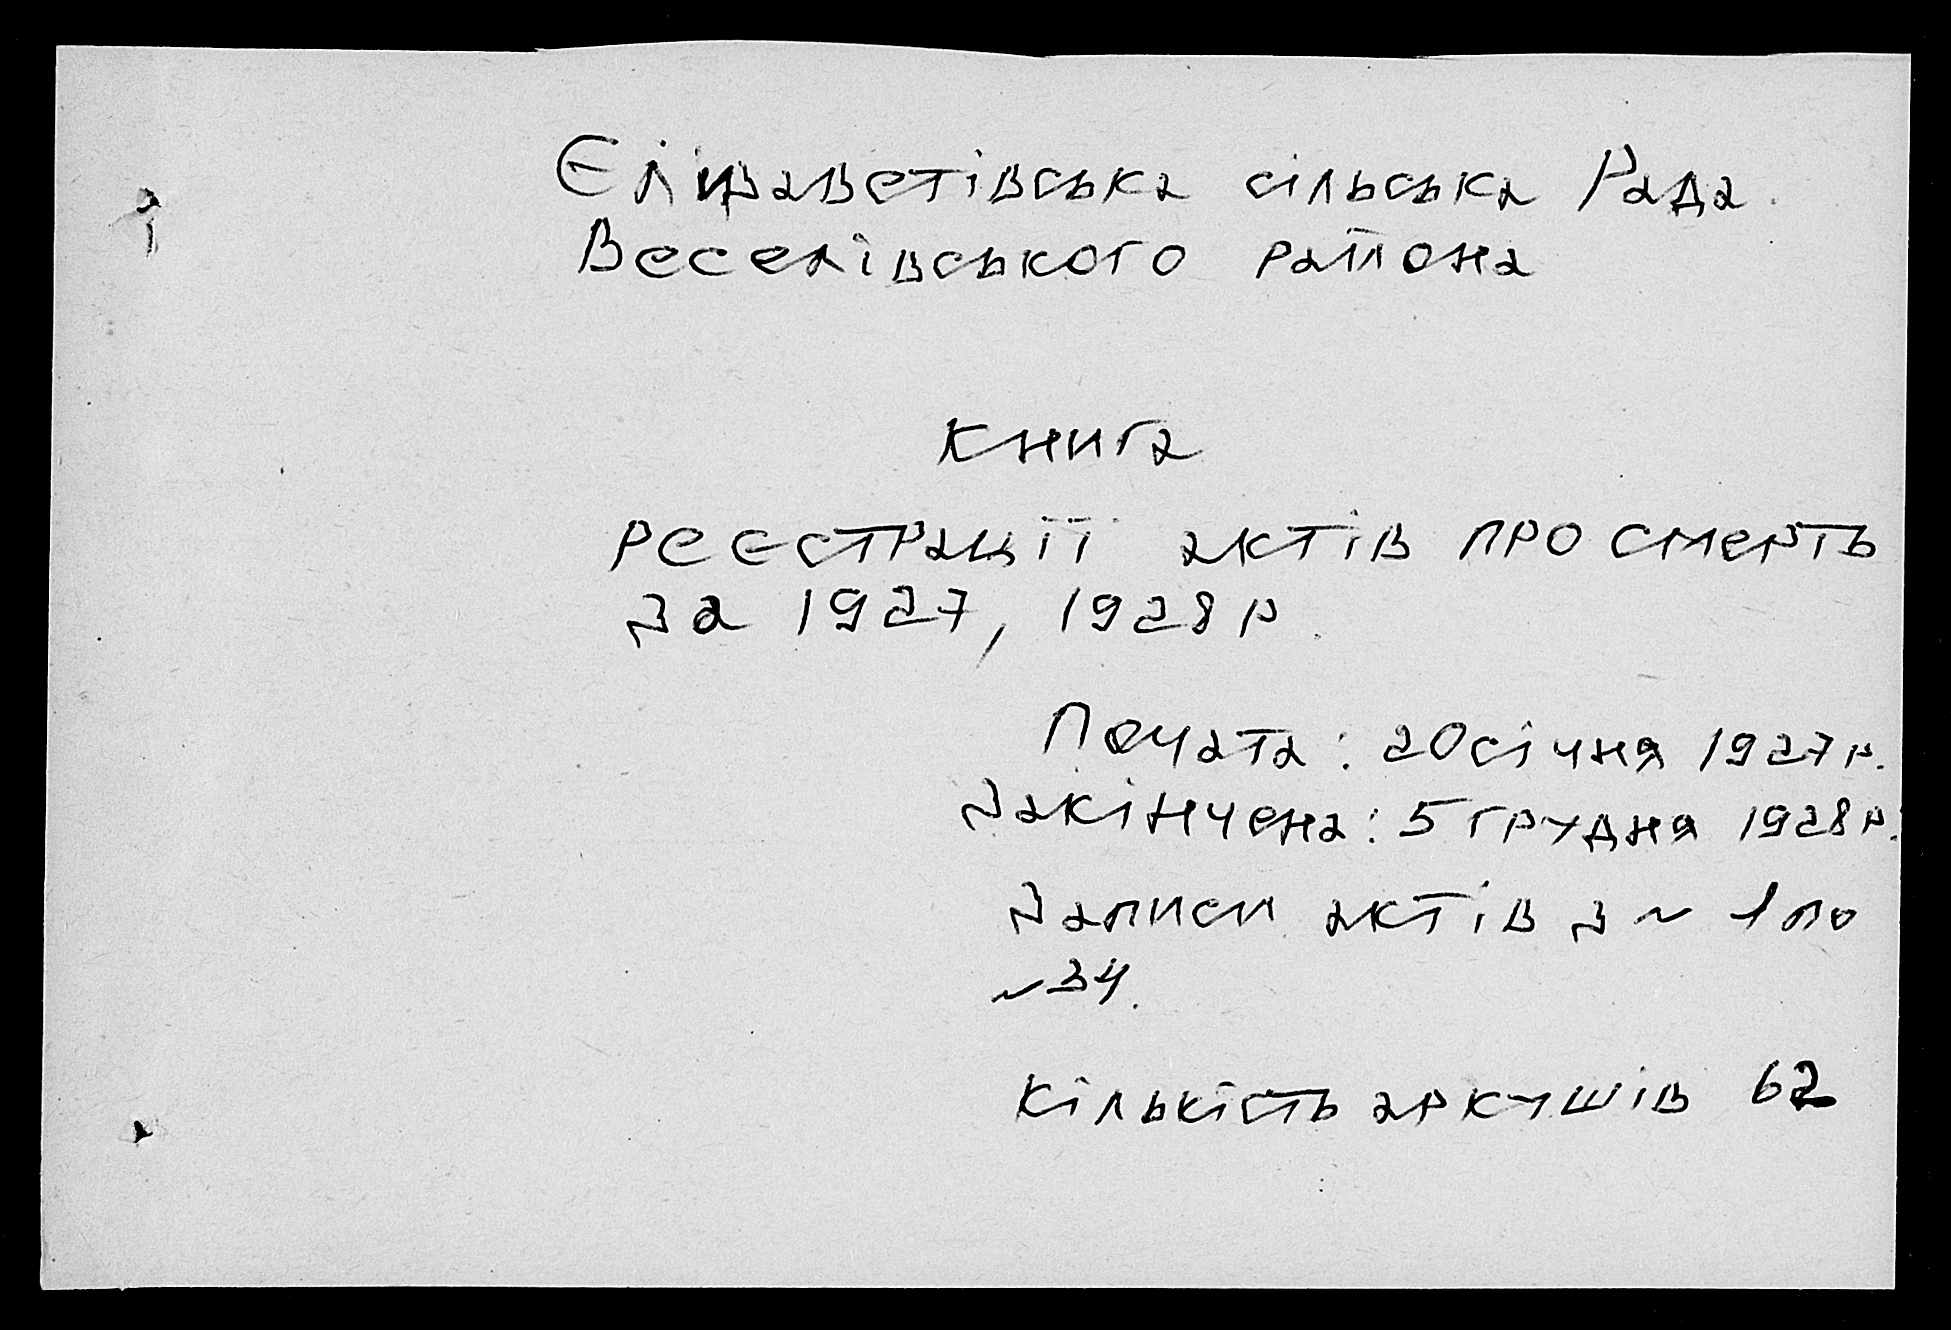 Єлізаветівська сільська Рада
Веселівського района
Книга
реєстрації актів про смерть
за 1927, 1928 р
Почата: 20 січня 1927 р.
Закінчена: 5 грудня 1928 р.
Записи актів з № 1 по
№ 34.
Кількість аркушів 62